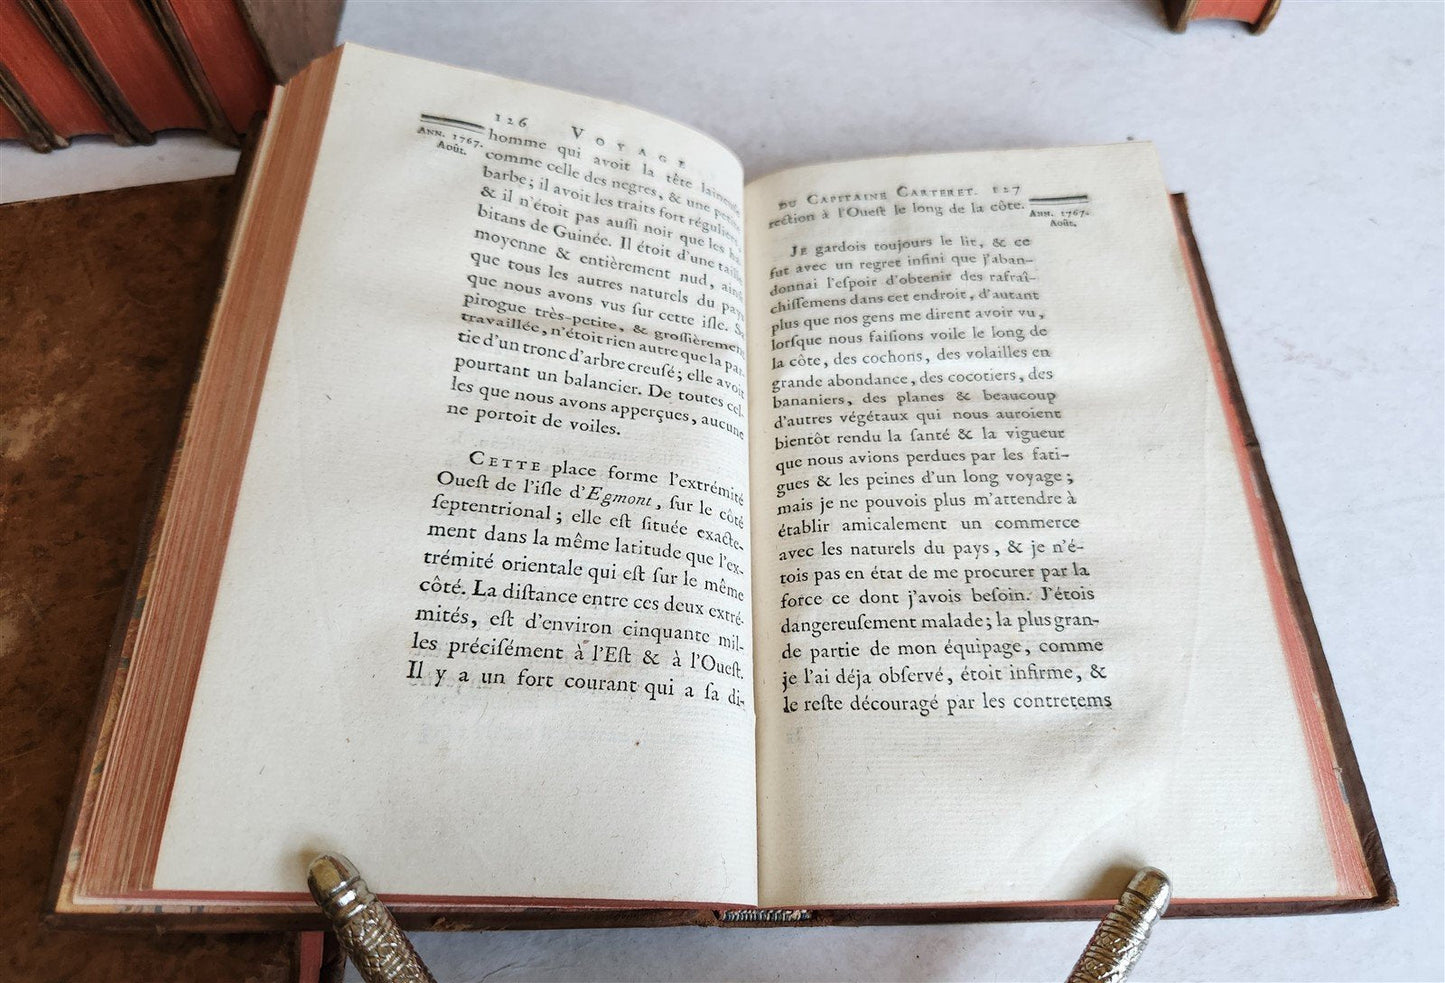 126 VOYAGE
ANN. 1767.
Août.
homme qui avoit la tête laineuse
comme celle des negres, & une petite
barbe; il avoit les traits fort réguliers,
& il n'étoit pas auſſi noir que les ha-
bitans de Guinée. Il étoit d'une taille
moyenne & entièrement nud, ainſi
que tous les autres naturels du pays
que nous avons vus ſur cette iſle. Sa
pirogue très-petite, & groſſièrement
travaillée, n'étoit rien autre que la par-
tie d'un tronc d'arbre creuſé; elle avoit
pourtant un balancier. De toutes cel-
les que nous avons apperçues, aucune
ne portoit de voiles.
CETTE place forme l'extrémité
Oueſt de l'iſle d'Egmont, ſur le côté
ſeptentrional; elle eſt ſituée exacte-
ment dans la même latitude que l'ex-
trémité orientale qui eſt ſur le même
côté. La diſtance entre ces deux extré-
mités, eſt d'environ cinquante mil-
les préciſément à l'Eſt & à l'Oueſt.
Il y a un fort courant qui a ſa di-
DU CAPITAINE CARTERET. 127
ANN. 1767.
Août.
rection à l'Oueſt le long de la côte.
JE gardois toujours le lit, & ce
fut avec un regret infini que j'aban-
donnai l'eſpoir d'obtenir des rafraî-
chiſſemens dans cet endroit, d'autant
plus que nos gens me dirent avoir vu,
lorſque nous faiſions voile le long de
la côte, des cochons, des volailles en
grande abondance, des cocotiers, des
bananiers, des planes & beaucoup
d'autres végétaux qui nous auroient
bientôt rendu la ſanté & la vigueur
que nous avions perdues par les fati-
gues & les peines d'un long voyage;
mais je ne pouvois plus m'attendre à
établir amicalement un commerce
avec les naturels du pays, & je n'é-
tois pas en état de me procurer par la
force ce dont j'avois beſoin. J'étois
dangereuſement malade; la plus gran-
de partie de mon équipage, comme
je l'ai déja obſervé, étoit infirme, &
le reſte découragé par les contretems